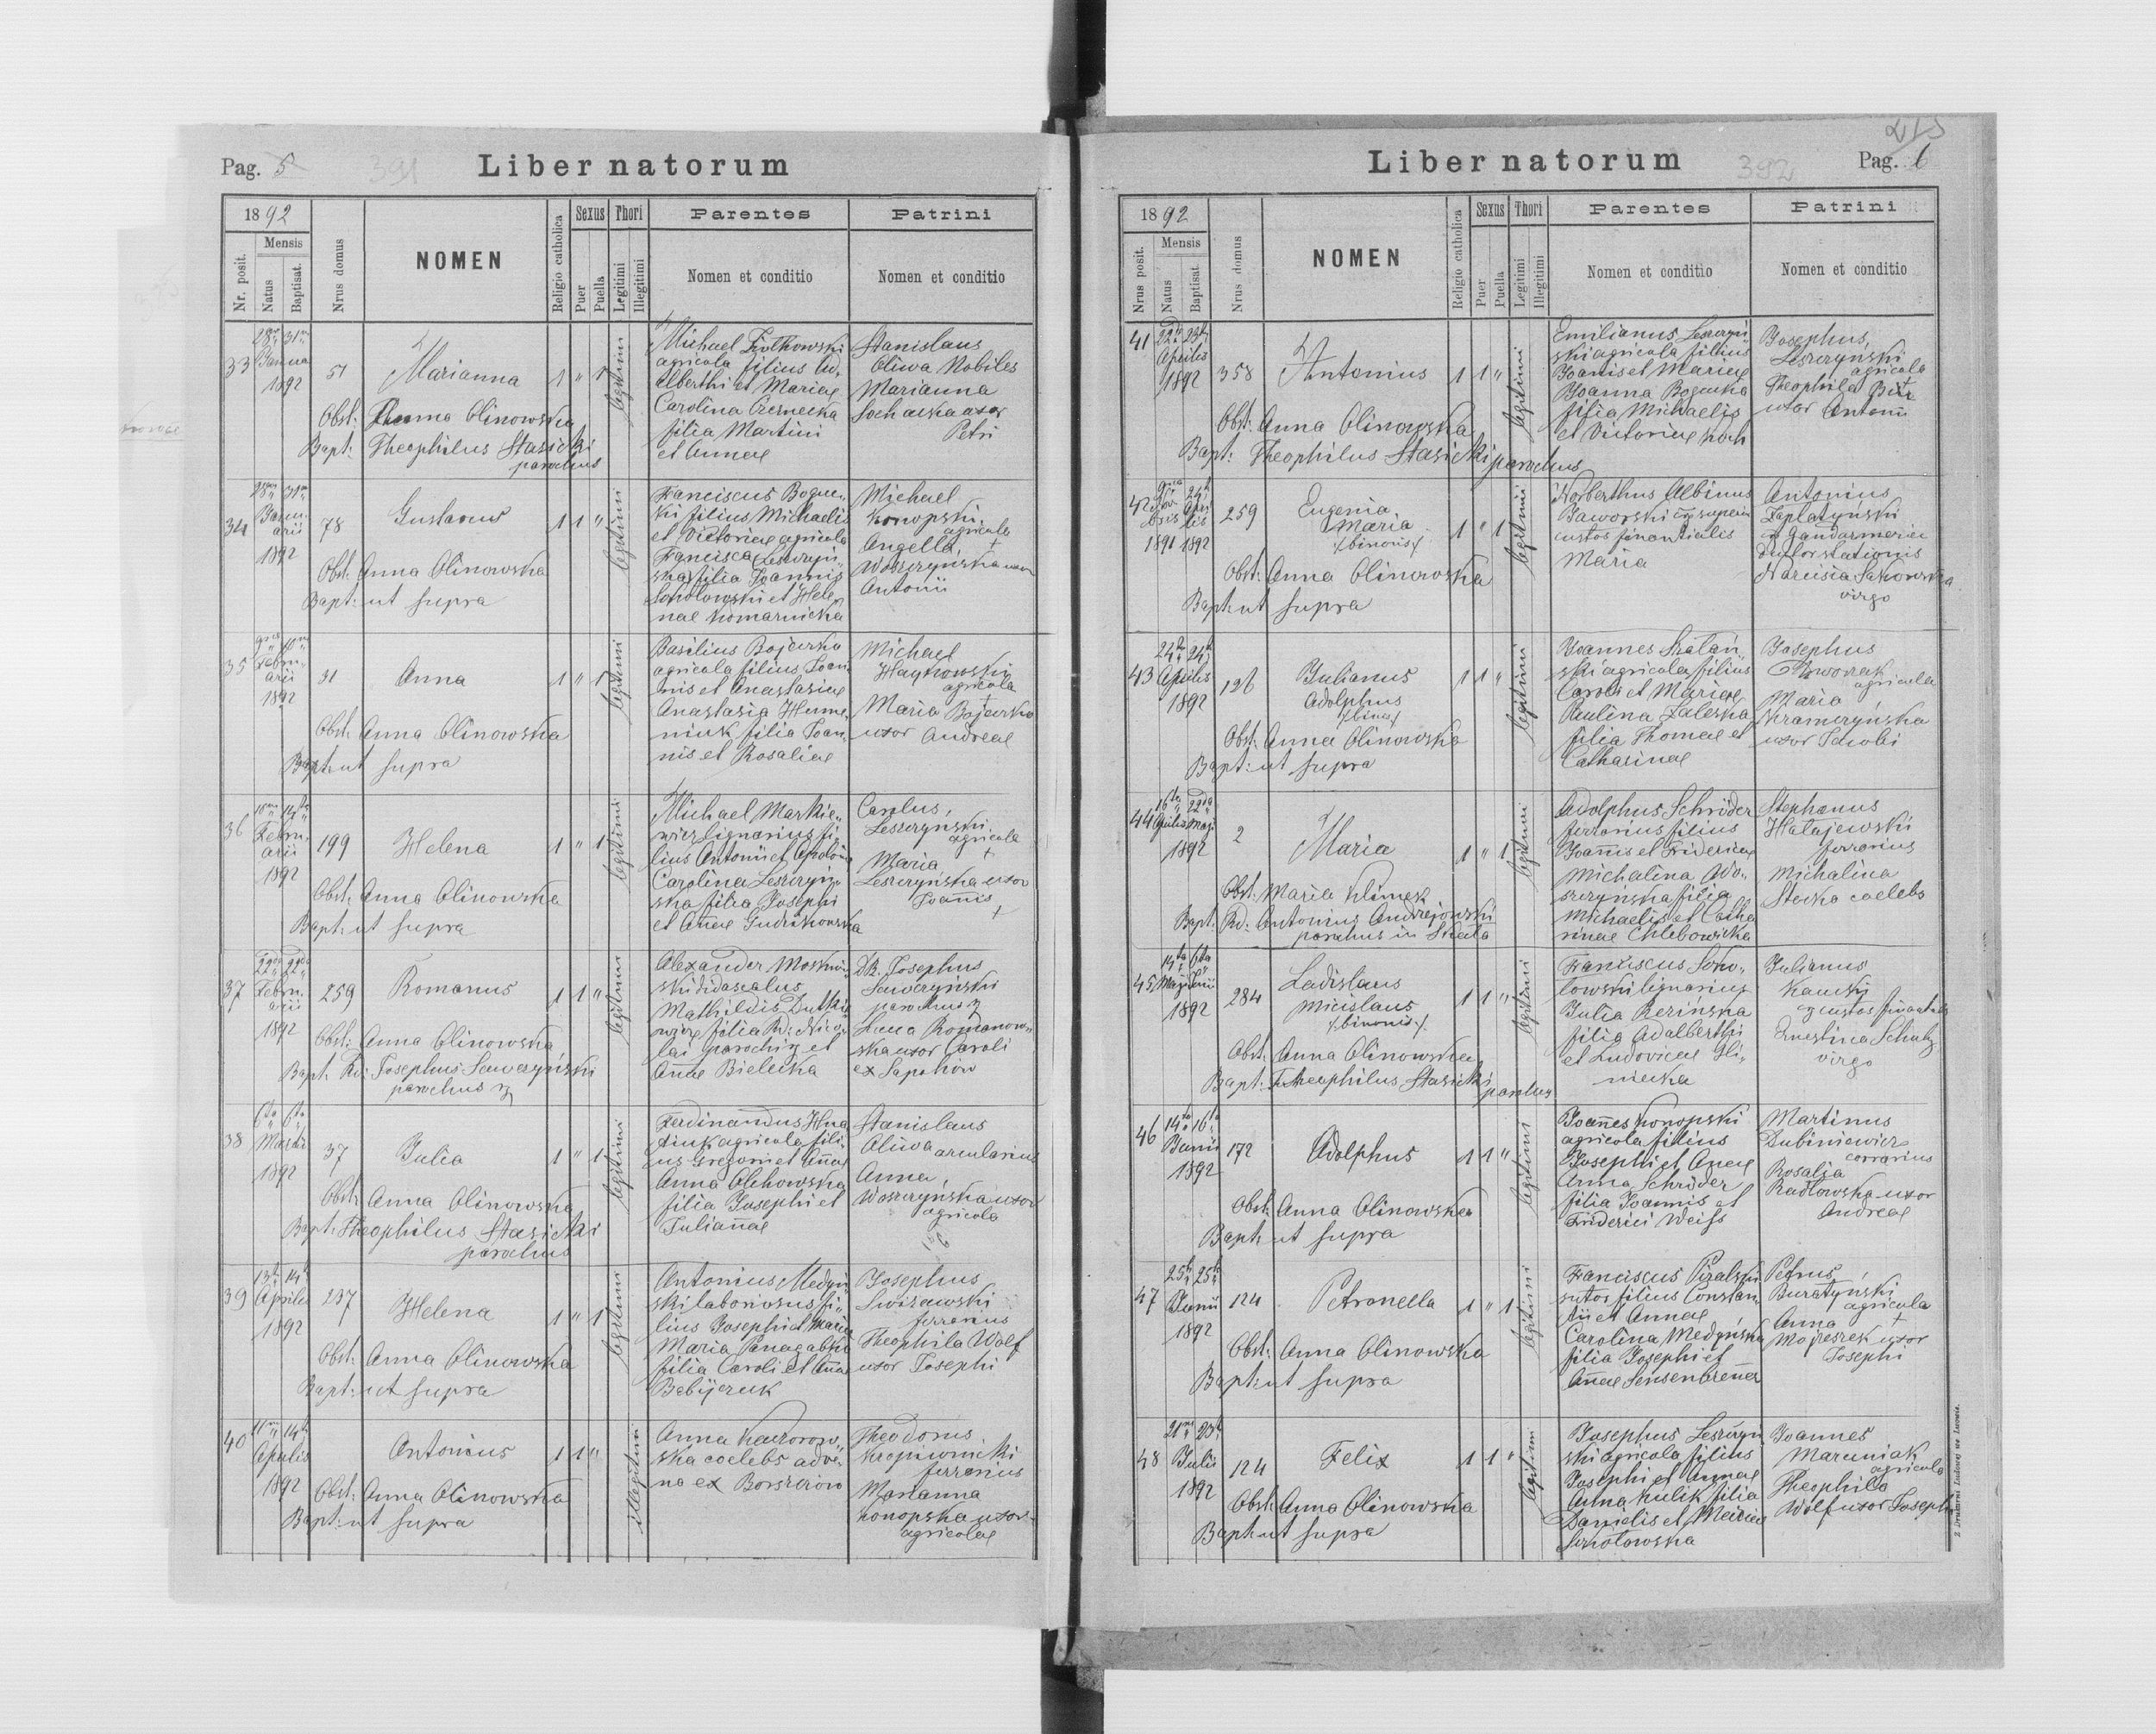 Pag. 5
391
Liber natorum
1892
Nr. posit.
Mensis
Natus
Baptisat.
Nrus domus
NOMEN
Religio catholica
Sexus
Puer
Puella
Thori
Legitimi
Illegitimi
Parentes
Nomen et conditio
Patrini
Nomen et conditio
33
28 31
1892
51
Marianna
1 " 1
legitimi
Michael
agricola filius Ad-
alberthi et Mariae
Carolina Czernecka
filia Martini
et Annae
Stanislaus
Oliwa Nobiles
Marianna
uxor
Petri
Obst: Anna Olinowska
Bapt: Theophilus Stasicki
parochus
34
28 31
Janu-
arii
1892
78
Gustavus
1 1 "
legitimi
Franciscus Bogue-
ki filius Michaelis
et Victoriae agricola
Francisca Leszczyń-
ska filia Joannis
Sokołowski et Hele-
nae Komarnicka
Michael
Konopski
agricola
Angella
Woszczyńska uxor
Antonii
Obst: Anna Olinowska
Bapt: ut supra
35
Febru-
arii
1892
31
Anna
1 " 1
legitimi
Basilius Bojeczko
agricola filius Joan-
nis et Anastasiae
Anastasia Hume-
niuk filia Joan-
nis et Rosaliae
Michael
agricola
Maria Bojeczko
uxor Andreae
Obst: Anna Olinowska
Bapt: ut supra
36
Febru-
arii
1892
199
Helena
1 " 1
legitimi
Michael Markie-
wicz lignarius fi-
lius Antonii et
Carolina Leszczyń-
ska filia Josephi
et Annae
Carolus
Leszczyński
agricola
Maria
Leszczyńska uxor
Joannis
Obst: Anna Olinowska
Bapt: ut supra
37
22 22
Febru-
arii
1892
259
Romanus
1 1 "
legitimi
Alexander
Mathildis
filia Rd: Nico-
lai parochi et
Annae Bielecka
Josephus
Sawczyński
parochus
Lena Romanow-
ska uxor Caroli
ex Sapohow
Obst: Anna Olinowska
Bapt. Rd: Josephus Sawczyński
parochus
38
6ta 6ta
Martii
1892
37
Julia
1 " 1
legitimi
Ferdinandus
agricola fili-
us Gregorii et Annae
Anna
filia Josephi et
Julianae
Stanislaus
Oliwa arcularius
Anna
Woszczyńska uxor
agricola
Obst: Anna Olinowska
Bapt: Theophilus Stasicki
parochus
39
13 14
Aprilis
1892
237
Helena
1 " 1
legitimi
Antonius Medyń-
ski laboriosus fi-
lius Josephi et Mariae
Maria
filia Caroli et Annae
Babijczuk
Josephus
ferrarius
Theophila Wolf
uxor Josephi
Obst: Anna Olinowska
Bapt: ut supra
40
11 14
Aprilis
1892
Antonius
1 1 "
illegitimi
Anna
ska coelebs adve-
na ex Borszczów
Theodorus
ferrarius
Marianna
Konopska uxor
agricolae
Obst: Anna Olinowska
Bapt: ut supra
215
Liber natorum
392
Pag. 6
1892
Nrus posit.
Mensis
Natus
Baptisat.
Nrus domus
NOMEN
Religio catholica
Sexus
Puer
Puella
Thori
Legitimi
Illegitimi
Parentes
Nomen et conditio
Patrini
Nomen et conditio
41
22 23
Aprilis
1892
358
Antonius
1 1 "
legitimi
Emilianus Leszczyń-
ski agricola filius
Joannis et Mariae
Joanna Bogucka
filia Michaelis
et Victoriae Koch
Josephus
Leszczyński
agricola
Theophila
uxor Antonii
Obst: Anna Olinowska
Bapt: Theophilus Stasicki parochus
42
24
1891 1892
259
Eugenia
Maria
/binonis/
1 " 1
legitimi
Norberthus Albinus
Jaworski
custos financialis
Maria
Antonius
Zaplatyński
Gandarmeriae
ductor stationis
Narcisia Sakowska
virgo
Obst: Anna Olinowska
Bapt: ut supra
43
24 24
Aprilis
1892
126
Julianus
Adolphus
1 1 "
legitimi
Joannes
agricola filius
Caroli et Mariae
Paulina Zaleska
filia Thomae et
Catharinae
Josephus
agricola
Maria
Krameryńska
uxor Jacobi
Obst: Anna Olinowska
Bapt: ut supra
44
16 22
Aprilis Maji
1892
2
Maria
1 " 1
legitimi
Adolphus Schrider
ferrarius filius
Joannis et Fridericae
Michalina
filia
Michaelis et Catha-
rinae Chlebowicka
Stephanus
Hałajewski
ferrarius
Michalina
Stecka coelebs
Obst: Maria Klimek
Bapt. Rd: Antonius Andrejowski
parochus in Skała
45
14ta 6ta
Maji Junii
1892
284
Ladislaus
Miecislaus
/:binonis:/
1 1 "
legitimi
Franciscus Soko-
łowski lignarius
Julia
filia Adalberthi
et Ludovicae Gli-
niecka
Julianus
custos
Ernestina Schulz
virgo
Obst: Anna Olinowska
Bapt: Theophilus Stasicki
parochus
46
14 16
Junii
1892
172
Adolphus
1 1 "
legitimi
Joannes Konopski
agricola filius
Josephi et Annae
Anna Schrider
filia Joannis et
Friderici Weiss
Martinus
Dubiniewicz
Rosalia
Radłowska uxor
Andreae
Obst: Anna Olinowska
Bapt: ut supra
47
25 25
Junii
1892
124
Petronella
1 " 1
legitimi
Franciscus
sutor filius Constan-
tii et Annae
Carolina Medyńska
filia Josephi et
Annae Sensenbrener
Petrus
Buratyński
agricola
Anna
uxor
Josephi
Obst: Anna Olinowska
Bapt: ut supra
48
21 23
Julii
1892
124
Felix
1 1 "
legitimi
Josephus Leszczyń-
ski agricola filius
Josephi et Annae
Anna Kulik filia
Danielis et Mariae
Sokołowska
Joannes
Marceniak
agricola
Theophila
Wolf uxor Josephi
Obst: Anna Olinowska
Bapt: ut supra
Z Drukarni Ludowej we Lwowie.